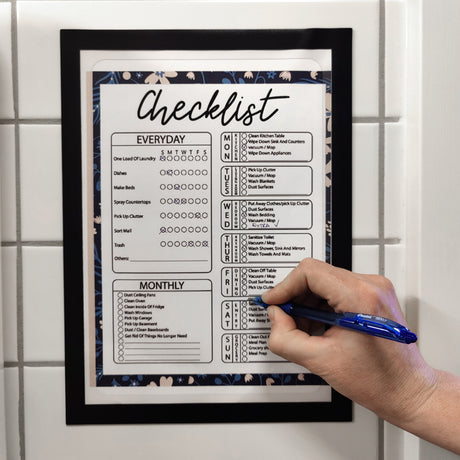 Checklist
EVERYDAY
S M T W T F S
One Load Of Laundry
Dishes
Make Beds
Spray Countertops
Pick Up Clutter
Sort Mail
Trash
Others:
MONTHLY
Dust Ceiling Fans
Clean Oven
Clean Inside Of Fridge
Wash Windows
Pick Up Garage
Pick Up Basement
Dust / Clean Baseboards
Get Rid Of Things No Longer Need
MON
KITCHEN
Clean Kitchen Table
Wipe Down Sink And Counters
vacuum / Mop
Wipe Down Appliances
TUES
Pick Up Clutter
Vacuum / Mop
Wash Blankets
Dust Surfaces
WED
BEDROOM
Put Away Clothes/pick Up Clutter
Dust Surfaces
Wash Bedding
Vacuum / Mop
THUR
Sanitize Toilet
Vacuum / Mop
Wash Shower, Sink And Mirrors
Wash Towels And Mats
FRI
DINING
Clean Off Table
Vacuum / Mop
Dust Surfaces
Pick Up Clutter
SAT
ENTRY
Dust Surfaces
Vacuum /
Put Away
SUN
Clean Out
Meal Plan
Grocery
Meal Prep